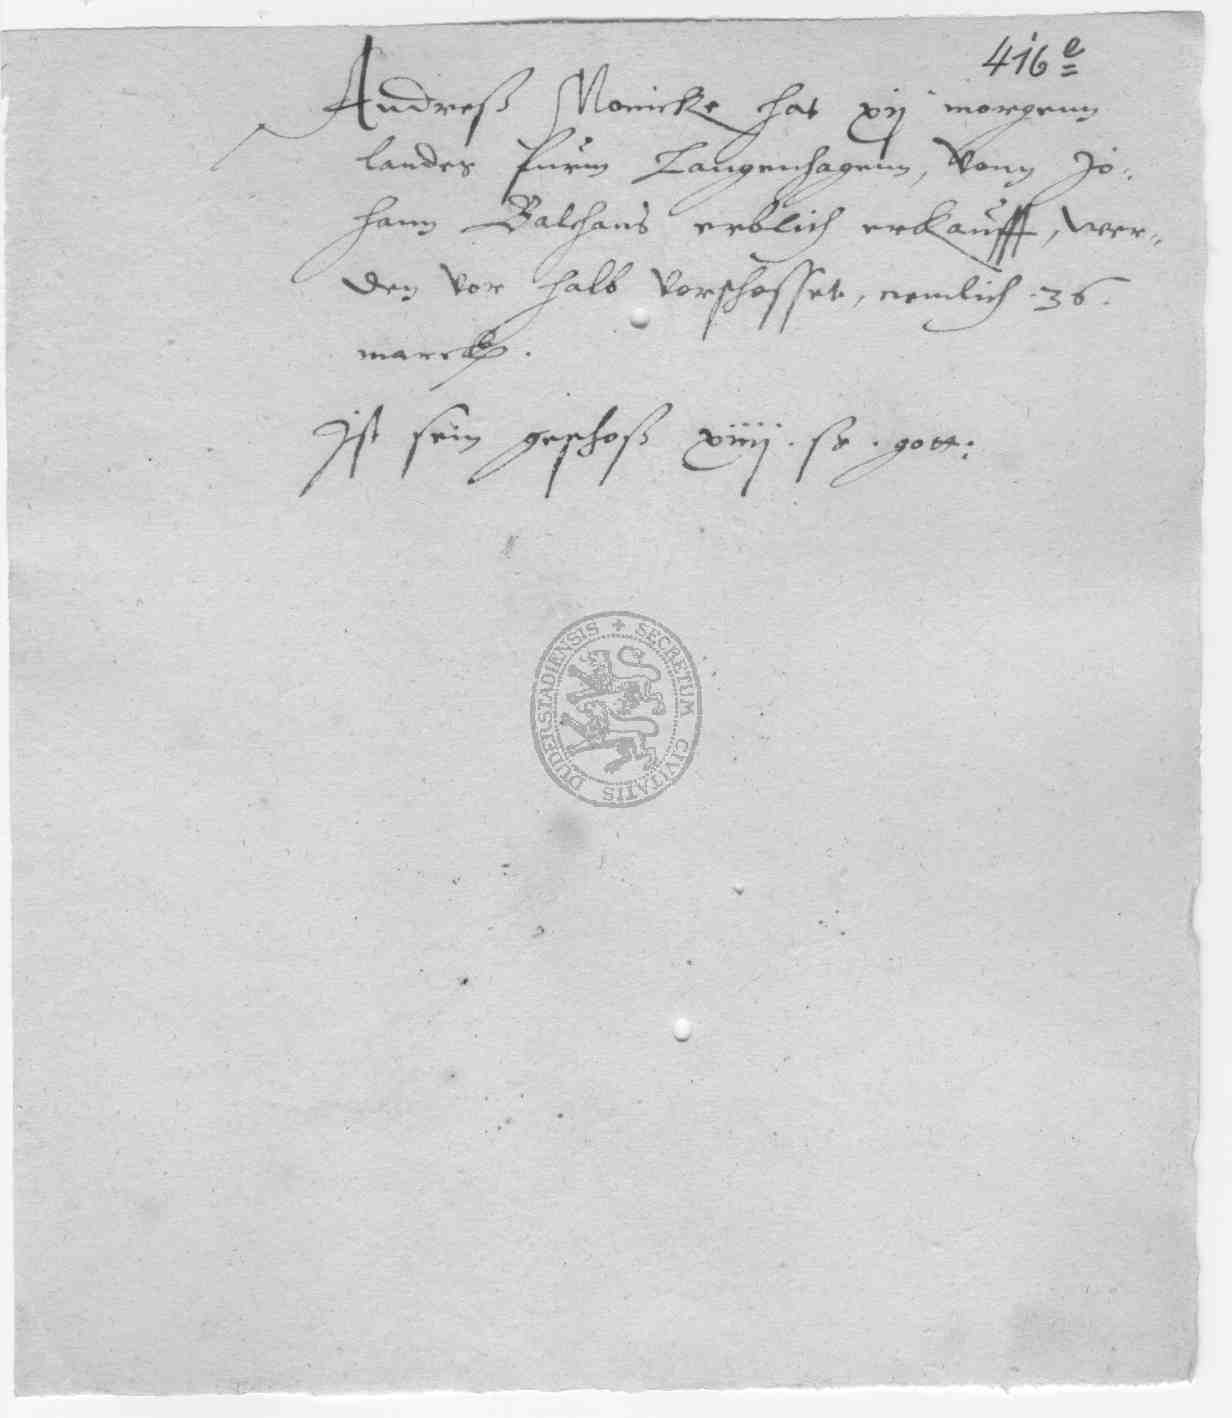 416 e
Andreß Monicke hat xij morgenn
landes furm Langenhagenn, vonn Jo:
hann Balthaus erblich erkaufft, wer„
den vor halb vorschosset, nemlich .36.
marck.
Ist sein geschoß xiiij . sz . gott:
SECRETUM CIVITATIS DUDERSTADIENSIS